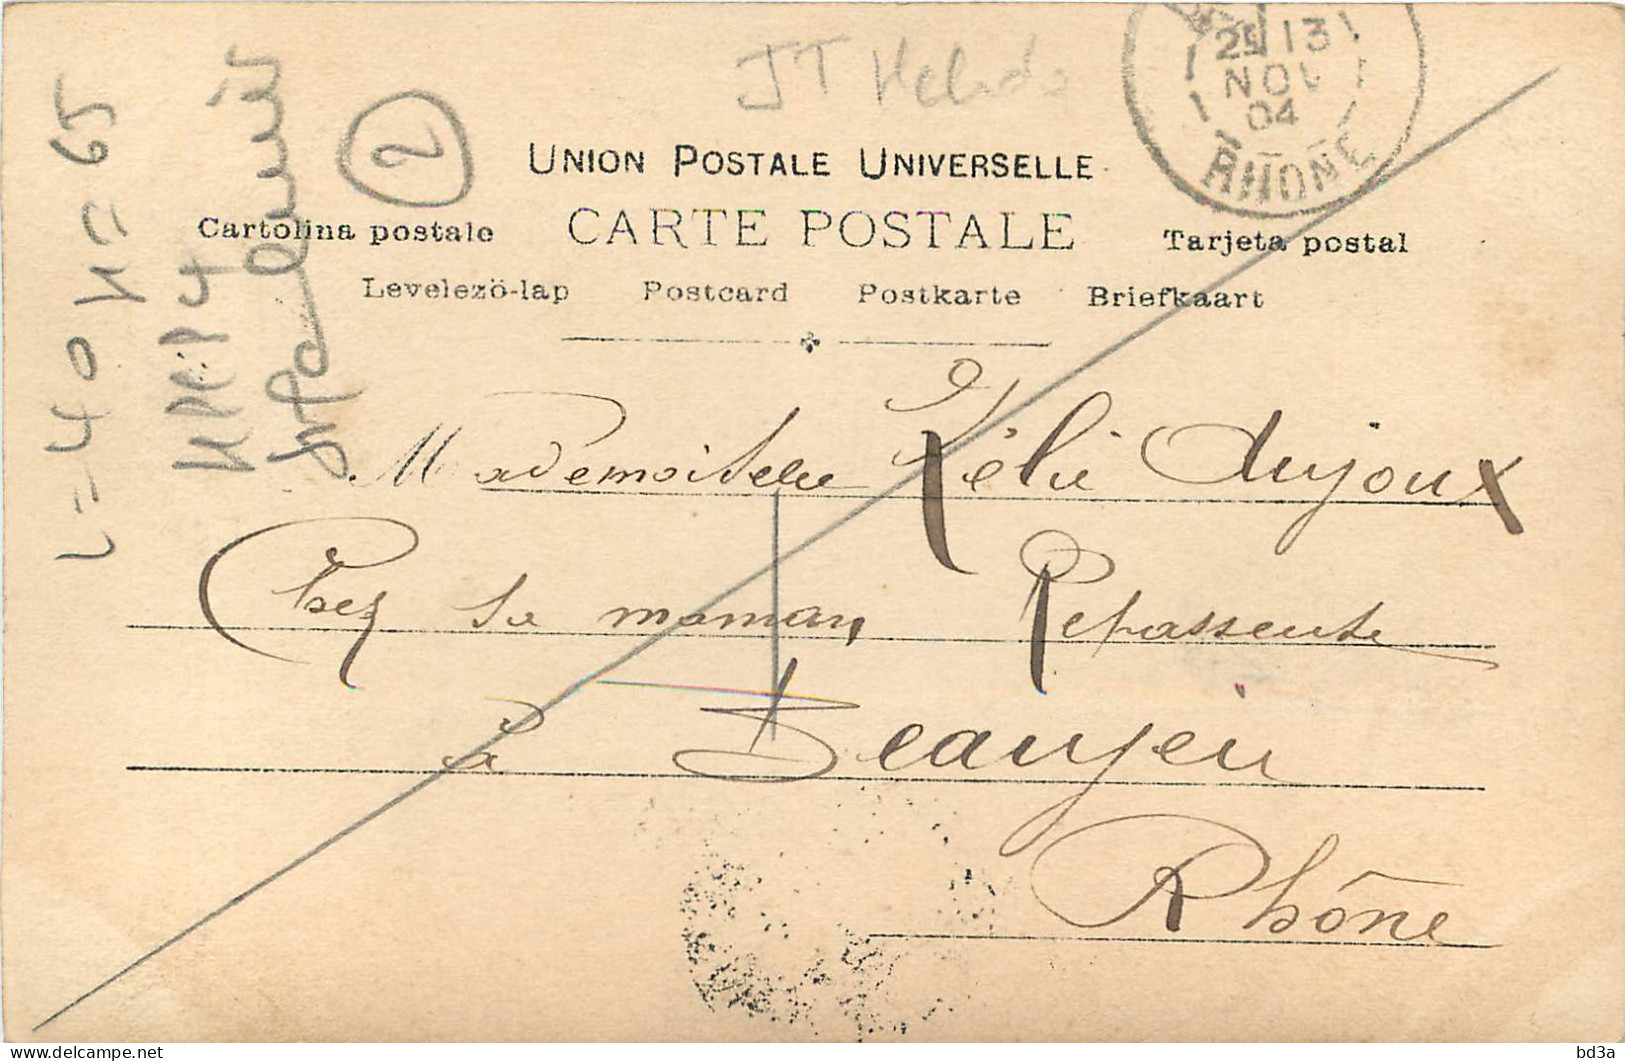 JT Hebdo
25 13
NOV
04
RHONE
2
UNION POSTALE UNIVERSELLE
CARTE POSTALE
Cartolina postale
Tarjeta postal
Levelezö-lap Postcard Postkarte Briefkaart
Mademoiselle Zélie Aujoux
Chez sa maman, Repasseuse
à Beaujeu
Rhône
bd3a